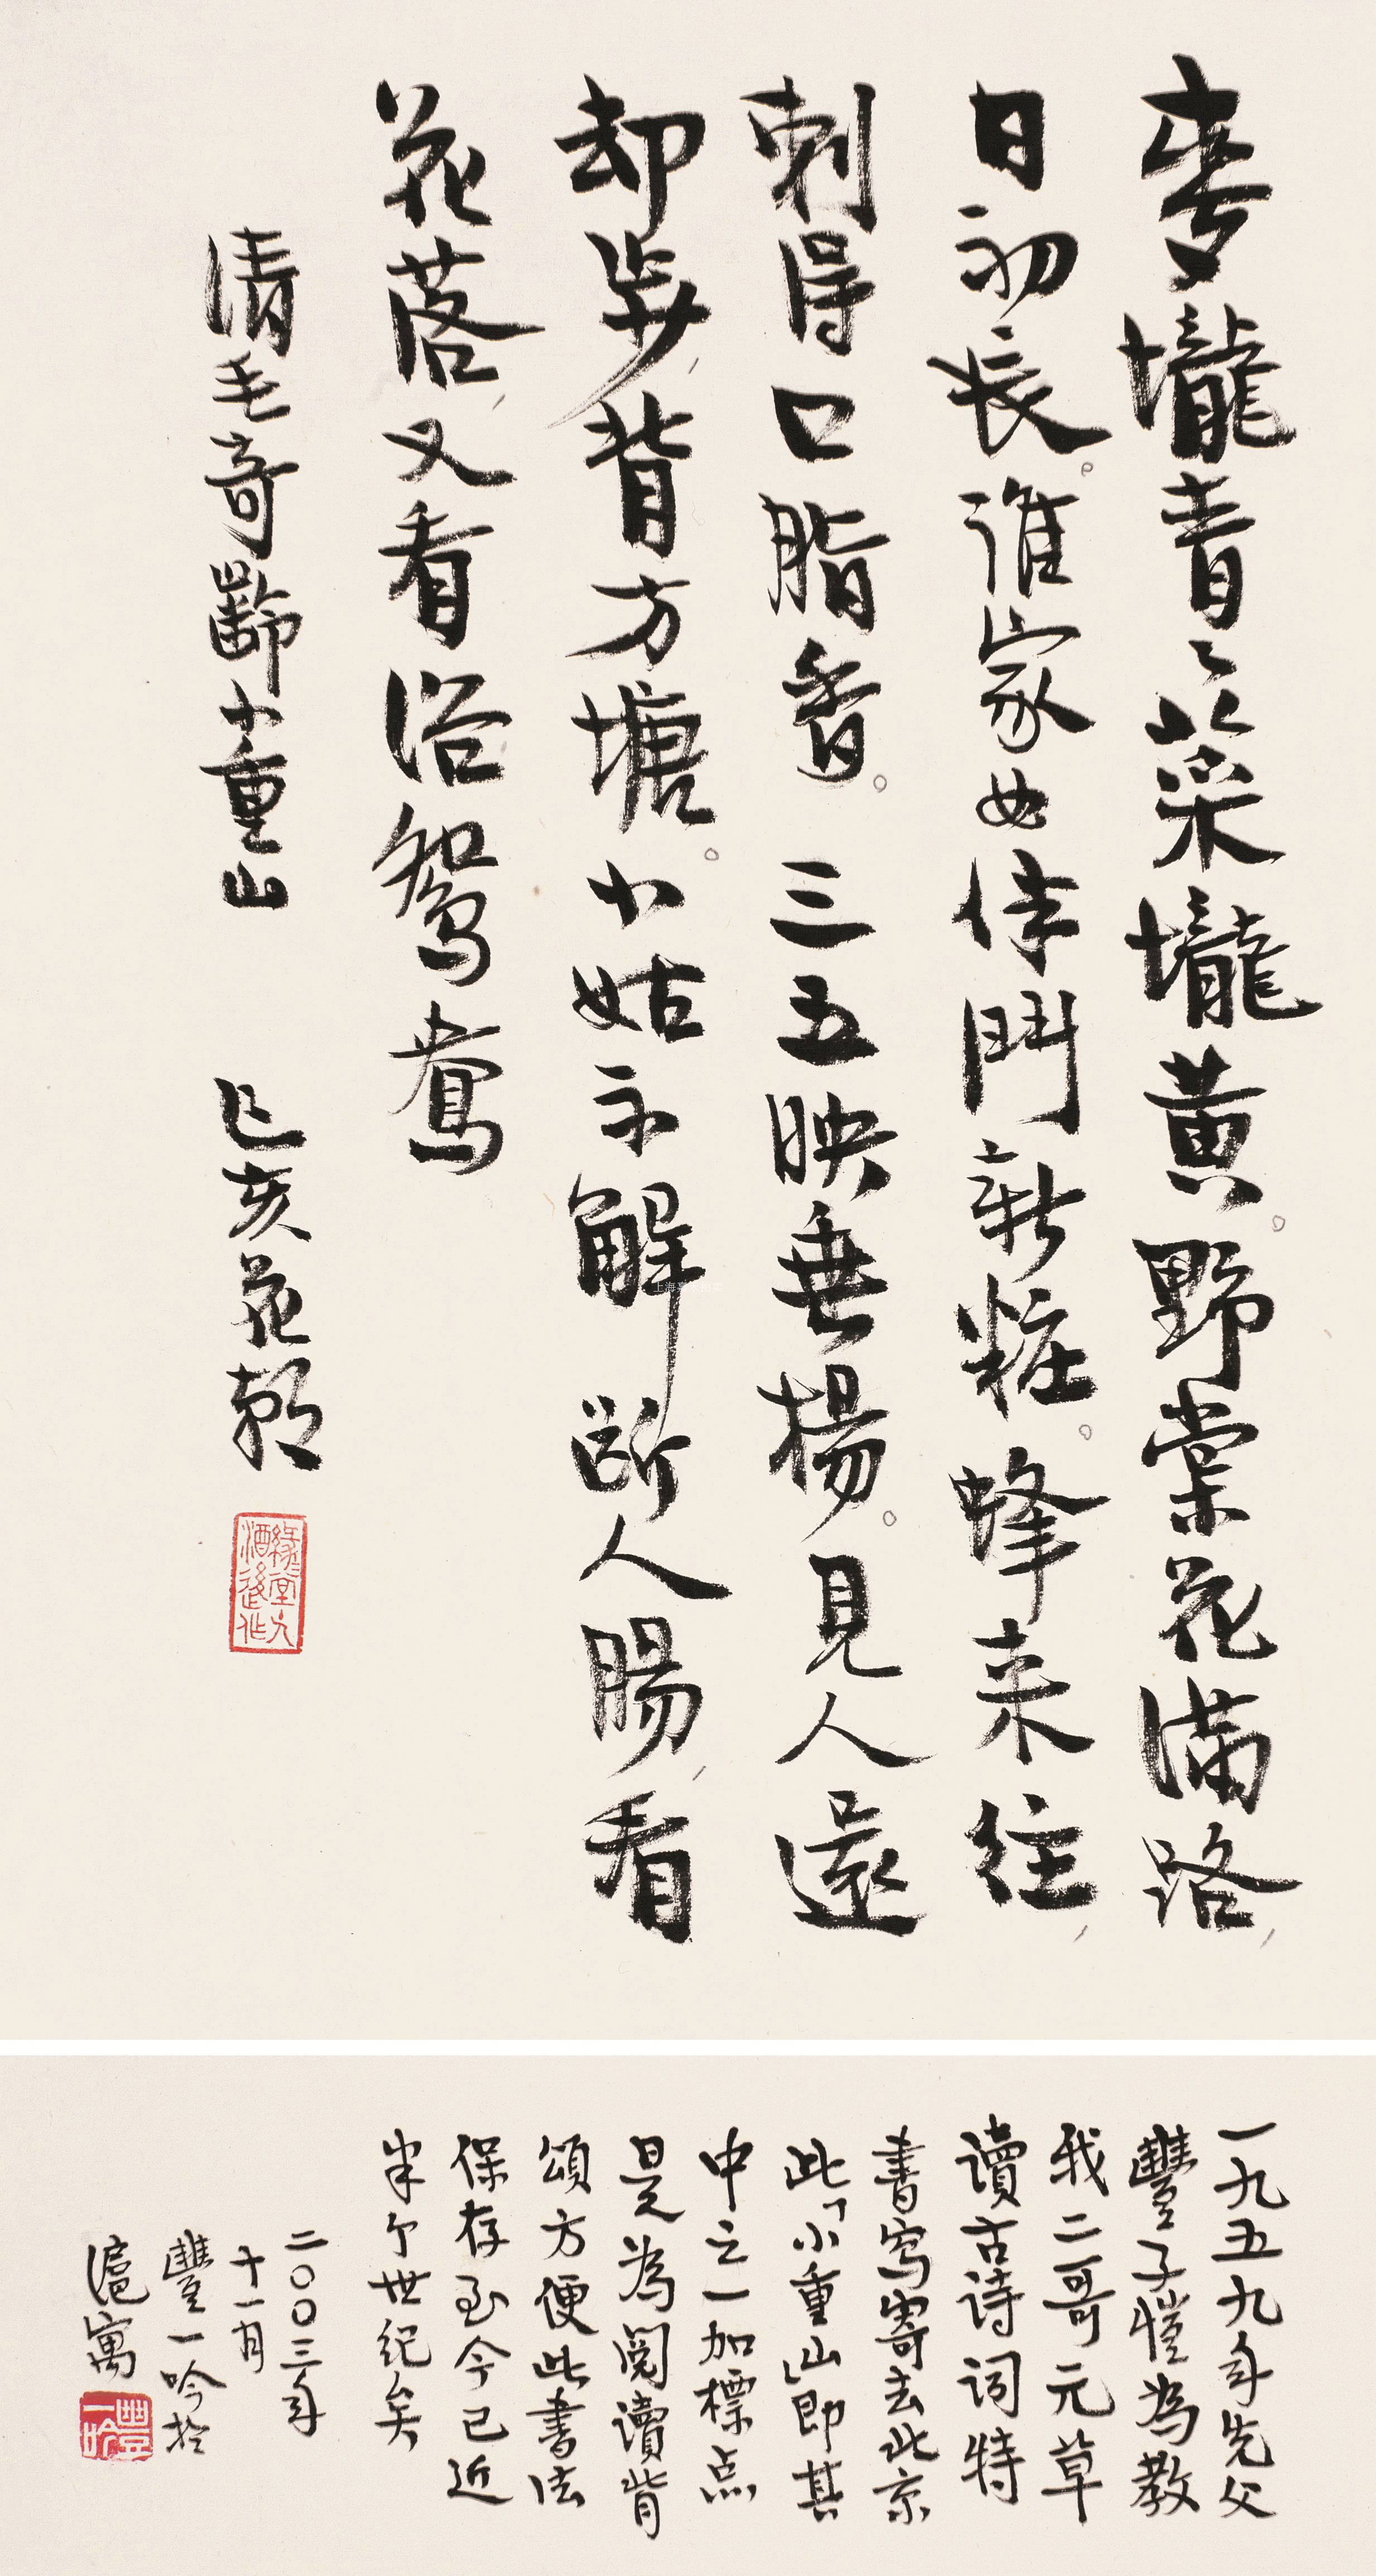 麥壠青々菜壠黃。野棠花滿路，
日初長。誰家女伴鬥新粧。蜂来往，
刺得口脂香。三五映垂楊。見人還
却步，背方塘。小姑不解斷人腸，看
花落，又看浴鴛鴦
清毛奇齡小重山
己亥花朝
緣堂
酒後作
一九五九年先父
豐子愷為教
我二哥元草
讀古诗词特
書寫寄去北京
此「小重山」即其
中之一加標点
是為閱讀背
頌方便此書法
保存至今已近
半个世纪矣
二〇〇三年
十一月
豐一吟於
滬寓
豐一吟